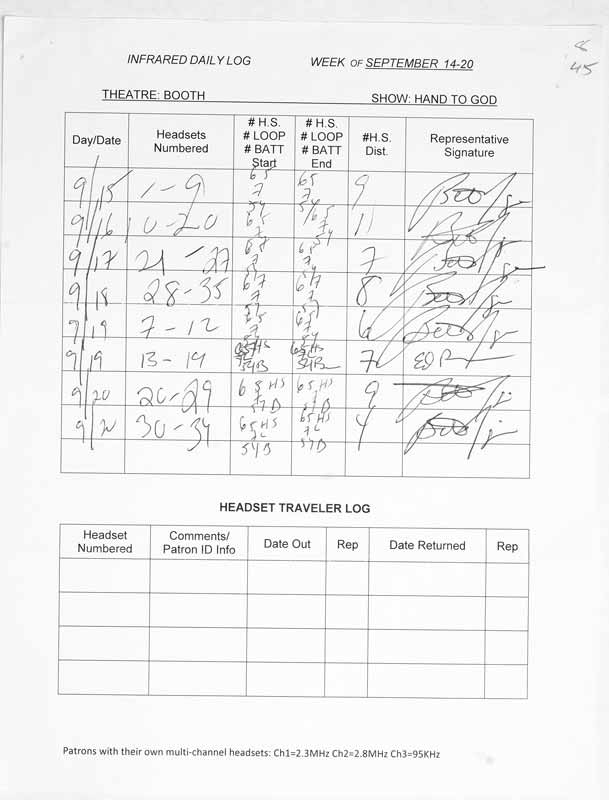 8
45
INFRARED DAILY LOG WEEK OF SEPTEMBER 14-20
THEATRE: BOOTH SHOW: HAND TO GOD
Day/Date Headsets Numbered # H.S. # LOOP # BATT Start # H.S. # LOOP # BATT End #H.S. Dist. Representative Signature
9/15 1-9 65 7 54 65 7 54 9
9/16 10-20 65 7 54 65 7 54 11
9/17 21-27 7
9/18 28-35 67 7 67 7 8
9/19 7-12 65 7 65 7 6
9/19 13-19 54B 7
9/20 20-29 65HS 7 57B 65HS 7 57B 9
9/20 30-34 65HS 7L 54B 65HS 7L 57B 4
HEADSET TRAVELER LOG
Headset Numbered Comments/ Patron ID Info Date Out Rep Date Returned Rep
Patrons with their own multi-channel headsets: Ch1=2.3MHz Ch2=2.8MHz Ch3=95KHz